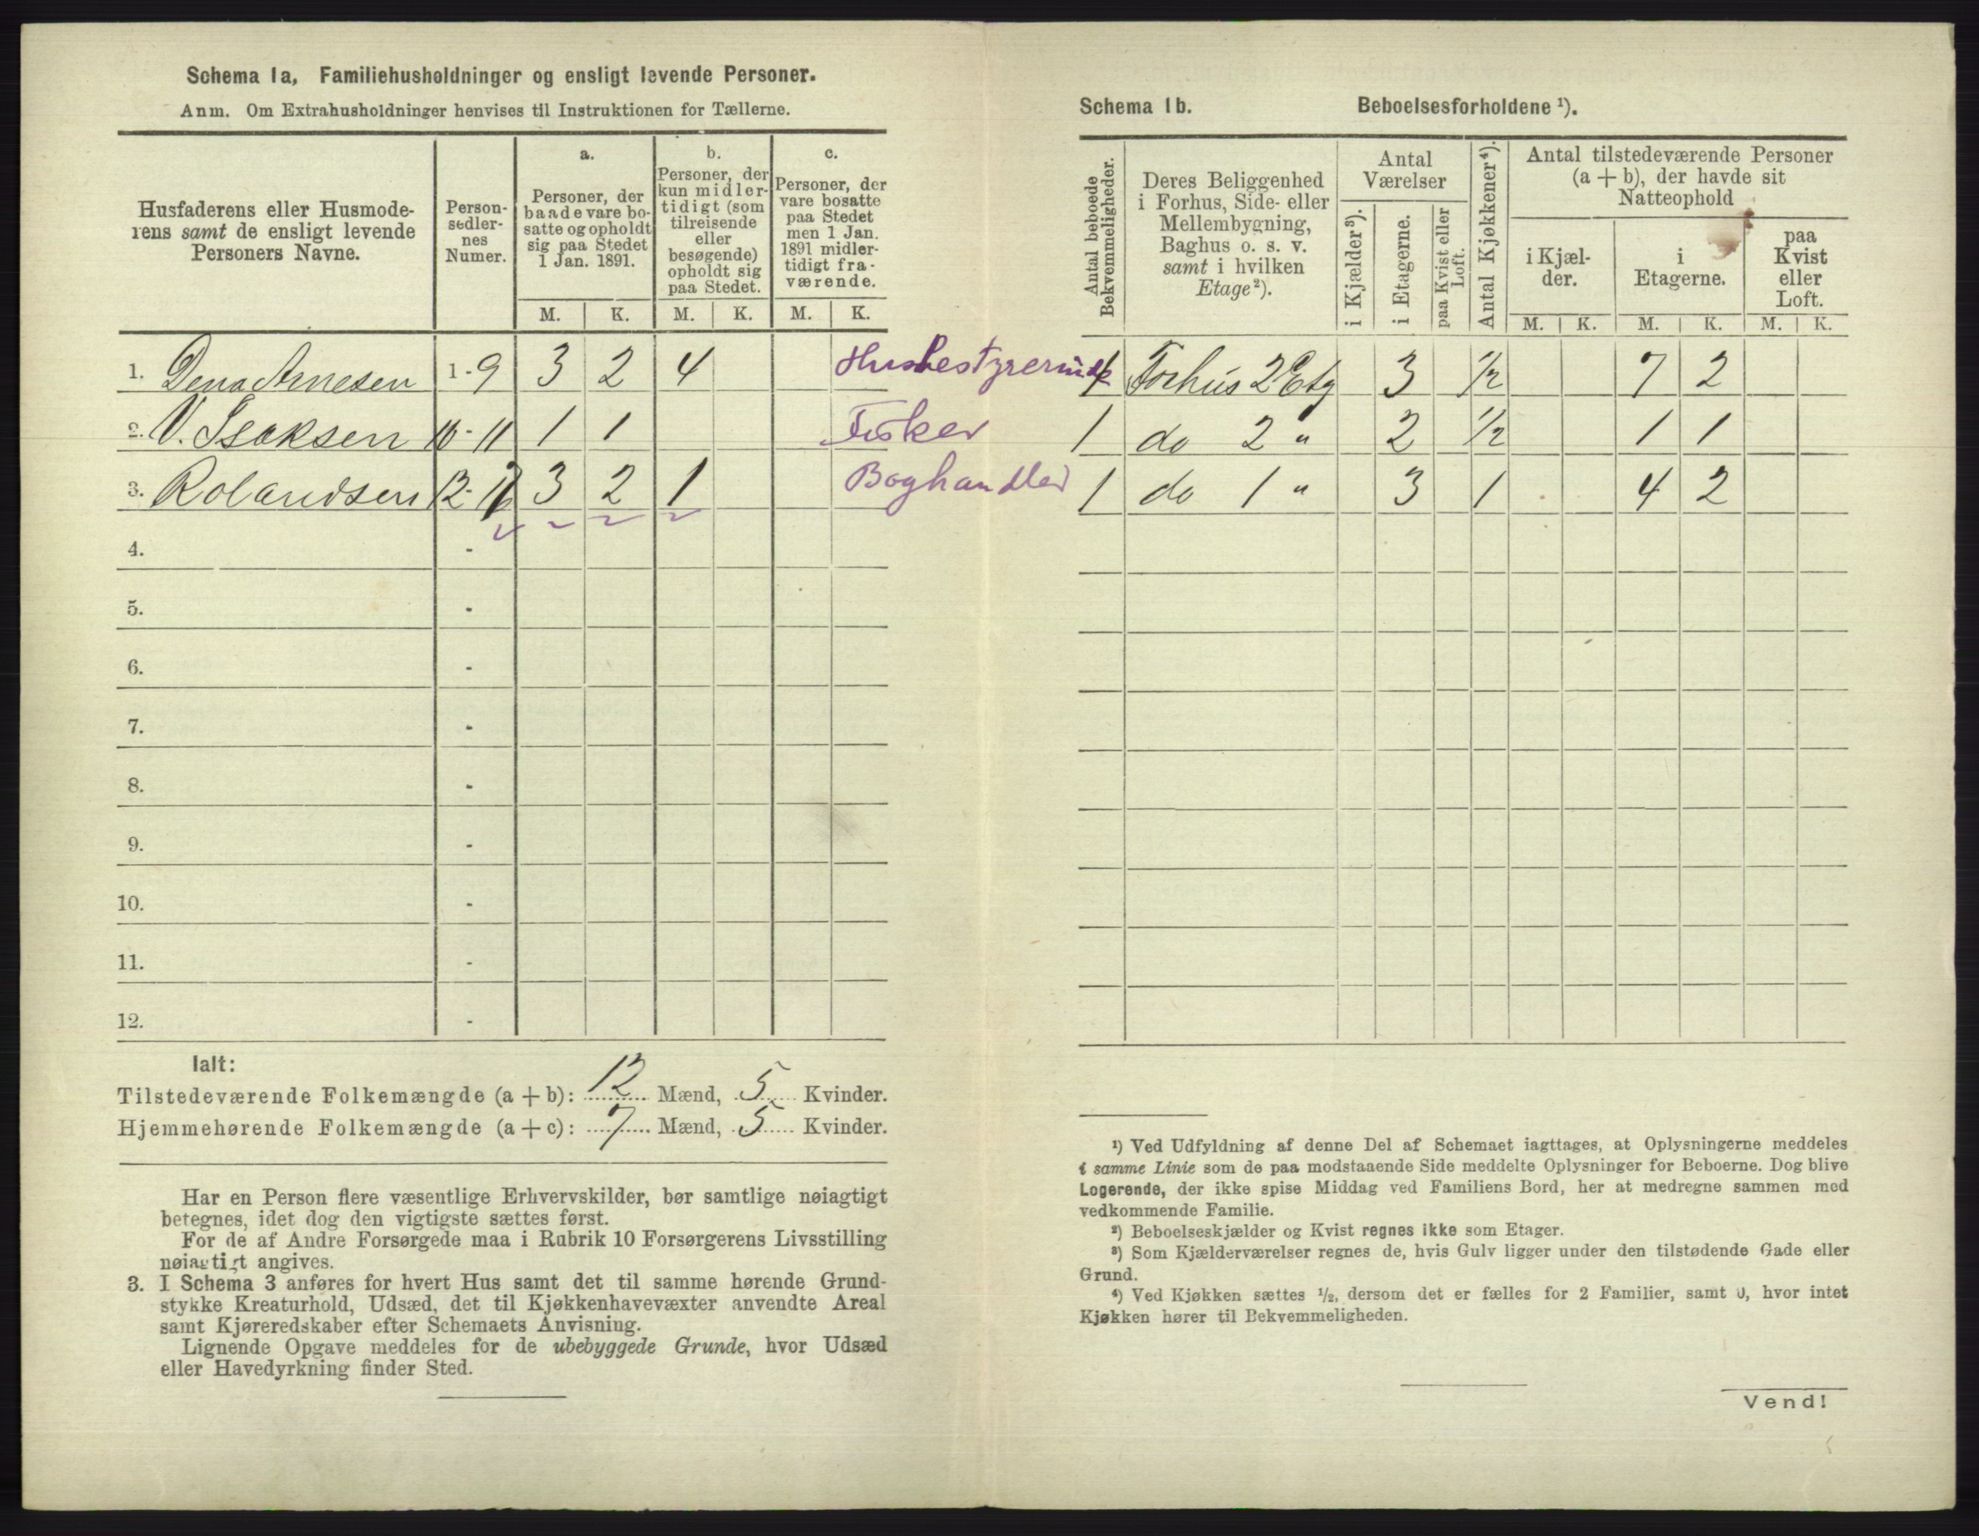 Schema 1a, Familiehusholdninger og ensligt levende Personer.
Anm. Om Extrahusholdninger henvises til Instruktionen for Tællerne.
Husfaderens eller Husmode-
rens samt de ensligt levende
Personers Navne.
Person-
sedler-
nes
Numer.
a.
Personer, der
baade vare bo-
satte og opholdt
sig paa Stedet
1 Jan. 1891.
b.
Personer, der
kun midler-
tidigt (som
tilreisende
eller
besøgende)
opholdt sig
paa Stedet.
c.
Personer, der
vare bosatte
paa Stedet
men 1 Jan.
1891 midler-
tidigt fra-
værende.
M. K. M. K. M. K.
1. Dena Arnesen 1-9 3 2 4 Husbestyrerinde
2. V. Isaksen 10-11 1 1 Fisker
3. Rolandsen 12- 3 2 1 Boghandler
4. -
5. -
6. -
7. -
8. -
9. -
10. -
11. -
12. -
Ialt:
Tilstedeværende Folkemængde (a + b): 12 Mænd, 5 Kvinder.
Hjemmehørende Folkemængde (a + c): 7 Mænd, 5 Kvinder.
Har en Person flere væsentlige Erhvervskilder, bør samtlige nøiagtigt
betegnes, idet dog den vigtigste sættes først.
For de af Andre Forsørgede maa i Rubrik 10 Forsørgerens Livsstilling
nøiagtigt angives.
3. I Schema 3 anføres for hvert Hus samt det til samme hørende Grund-
stykke Kreaturhold, Udsæd, det til Kjøkkenhavevæxter anvendte Areal
samt Kjøreredskaber efter Schemaets Anvisning.
Lignende Opgave meddeles for de ubebyggede Grunde, hvor Udsæd
eller Havedyrkning finder Sted.
Schema 1b. Beboelsesforholdene ¹).
Antal beboede
Bekvemmeligheder.
Deres Beliggenhed
i Forhus, Side- eller
Mellembygning,
Baghus o. s. v.
samt i hvilken
Etage²).
Antal
Værelser
i Kjælder³).
i Etagerne.
paa Kvist eller
Loft.
Antal Kjøkkener⁴).
Antal tilstedeværende Personer
(a + b), der havde sit
Natteophold
i Kjæl-
der.
i
Etagerne.
paa
Kvist
eller
Loft.
M. K. M. K. M. K.
1 Forhus 2 Etg 3 ½ 7 2
1 do 2 " 2 ½ 1 1
1 do 1 " 3 1 4 2
¹) Ved Udfyldning af denne Del af Schemaet iagttages, at Oplysningerne meddeles
i samme Linie som de paa modstaaende Side meddelte Oplysninger for Beboerne. Dog blive
Logerende, der ikke spise Middag ved Familiens Bord, her at medregne sammen med
vedkommende Familie.
²) Beboelseskjælder og Kvist regnes ikke som Etager.
³) Som Kjælderværelser regnes de, hvis Gulv ligger under den tilstødende Gade eller
Grund.
⁴) Ved Kjøkken sættes ½, dersom det er fælles for 2 Familier, samt 0, hvor intet
Kjøkken hører til Bekvemmeligheden.
Vend!